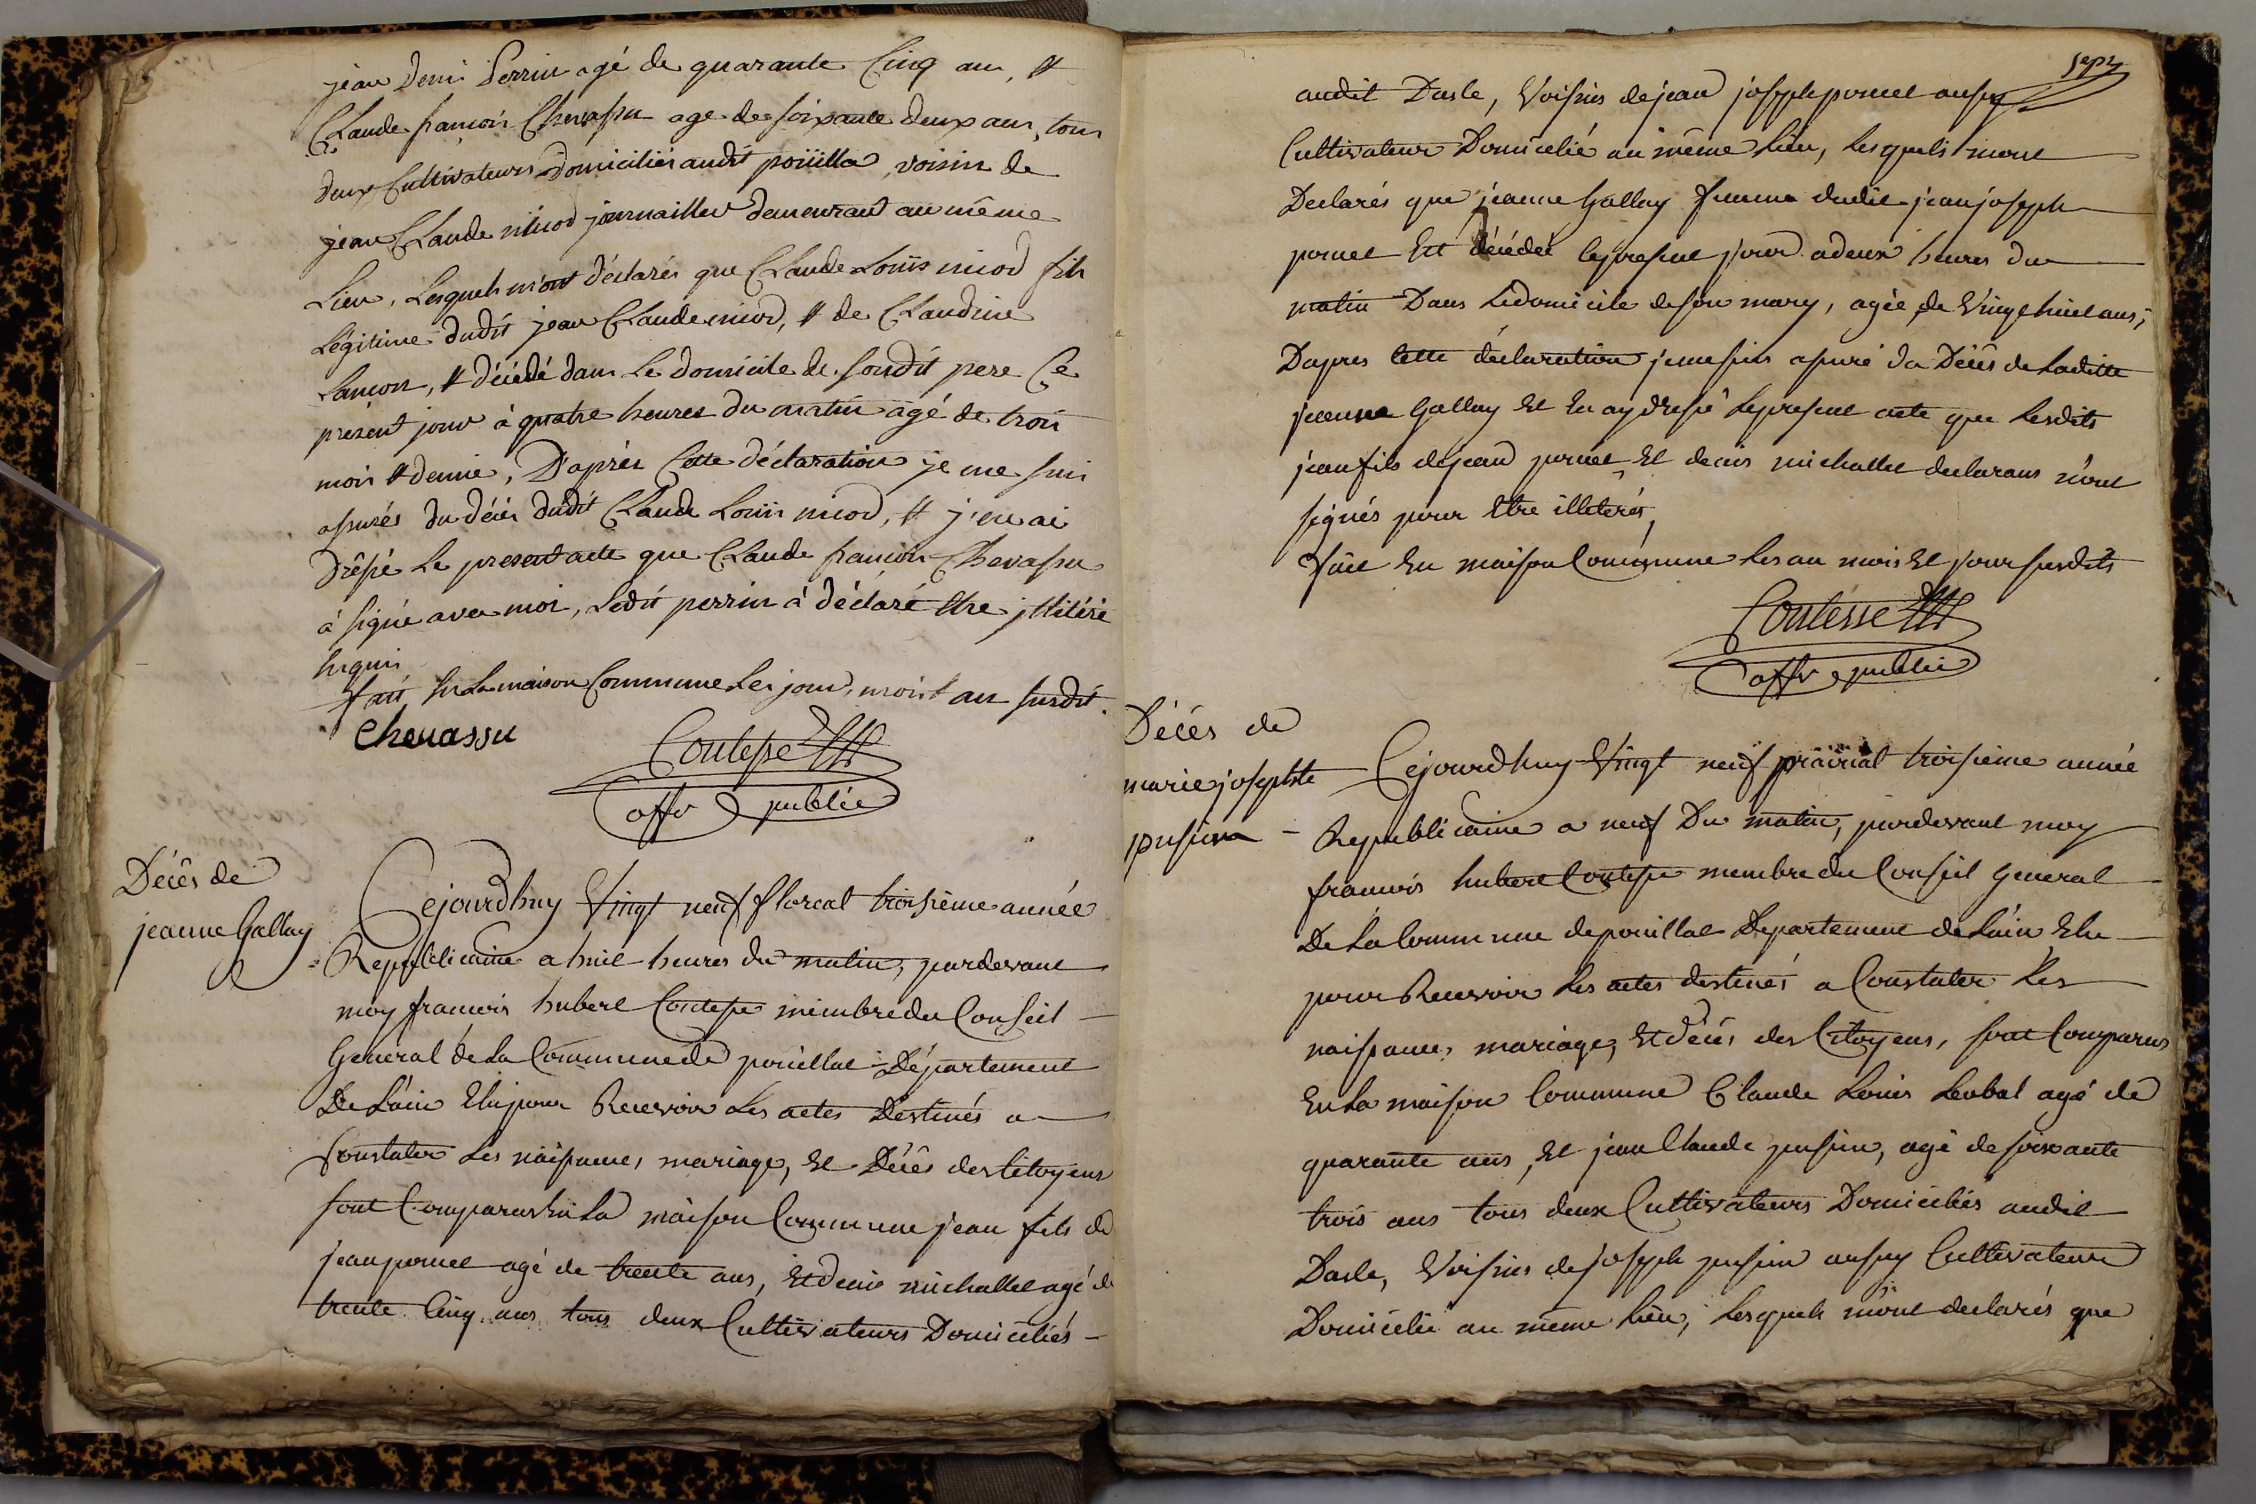 jean Deni Perrin agé de quarante Cinq ans, et
Claude francois Chevassu age de soixante deux ans, tous
deux Cultivateurs domiciliés audit poüilla, voisin de
jean Claude nicod journaillier demeurant au même
Lieu, Lesquels m'ont déclarés que Claude Loüis nicod fils
Légitime dudit jean Claude nicod, et de Claudine
Lancon, et décédé dans Le domicile de sondit pere Ce
présent jour à quatre heures du matin âgé de trois
mois et demie, D'après Cette déclaration je me suis
assurés du décès dudit Claude Loüis nicod, et j'en ai
drêssé Le present acte que Claude francois Chevassu
à signé avec moi, Ledit perrin à déclaré être illitéré
fait En La maison Commune Les jour, mois et an susdit.
Chevassu
Coutesse
offr public
Décès de
jeanne Gallay
Cejourdhuy Vingt neuf floreal troisième année
Republicaine a huit heures du matin, pardevant
moy francois hubert Coutesse membre du Conseil
General de La Commune de pouillat Département
De L'ain Elu pour Recevoir Les actes Destinés a
Constater Les naissances mariage, Et Décès des Citoyens
sont Comparus En La maison Commune jean fils de
jean poncet agé de trente ans, Et denis michallet agé de
trente Cinq ans tous deux Cultivateurs Domiciliés
audit Dasle, Voisins de jean joseph poncet aussy
Cultivateur Domicilié au même Lieu, Lesquels mont
Declarés que jeanne Gallay femme dudit jean joseph
poncet Est décédée le present jour a deux heures du
matin Dans Ledomicile de son mary, agée de Vingt huit ans,
Dapres Cette déclaration je me suis assuré du Décès de Laditte
jeanne Gallay Et En ay dressé Le present acte que Lesdits
jean fils de jean poncet Et denis michallet declarans n'ont
signés pour Etre illeterés,
fait En maison Commune Les an mois Et jour susdits
Coutesse
offr public
Décès de
marie josephte
pusin
Cejourdhuy Vingt neuf prairial troisieme année
Republicaine a neuf Du matin, pardevant moy
francois hubert Coutesse membre du Conseil General
De La Commune de pouillat Departement de L'ain Elu
pour Recevoir Les actes destinés a Constater Les
naissances mariage, Et décès des Citoyens, sont Comparus
En La maison Commune Claude Louis agé de
quarante ans, Et jean Claude pusin, agé de soixante
trois ans tous deux Cultivateurs Domiciliés audit
Dasle, Voisins de joseph pusin aussy Cultivateur
Domicilié au même Lieu, Lesquels m'ont declarés que